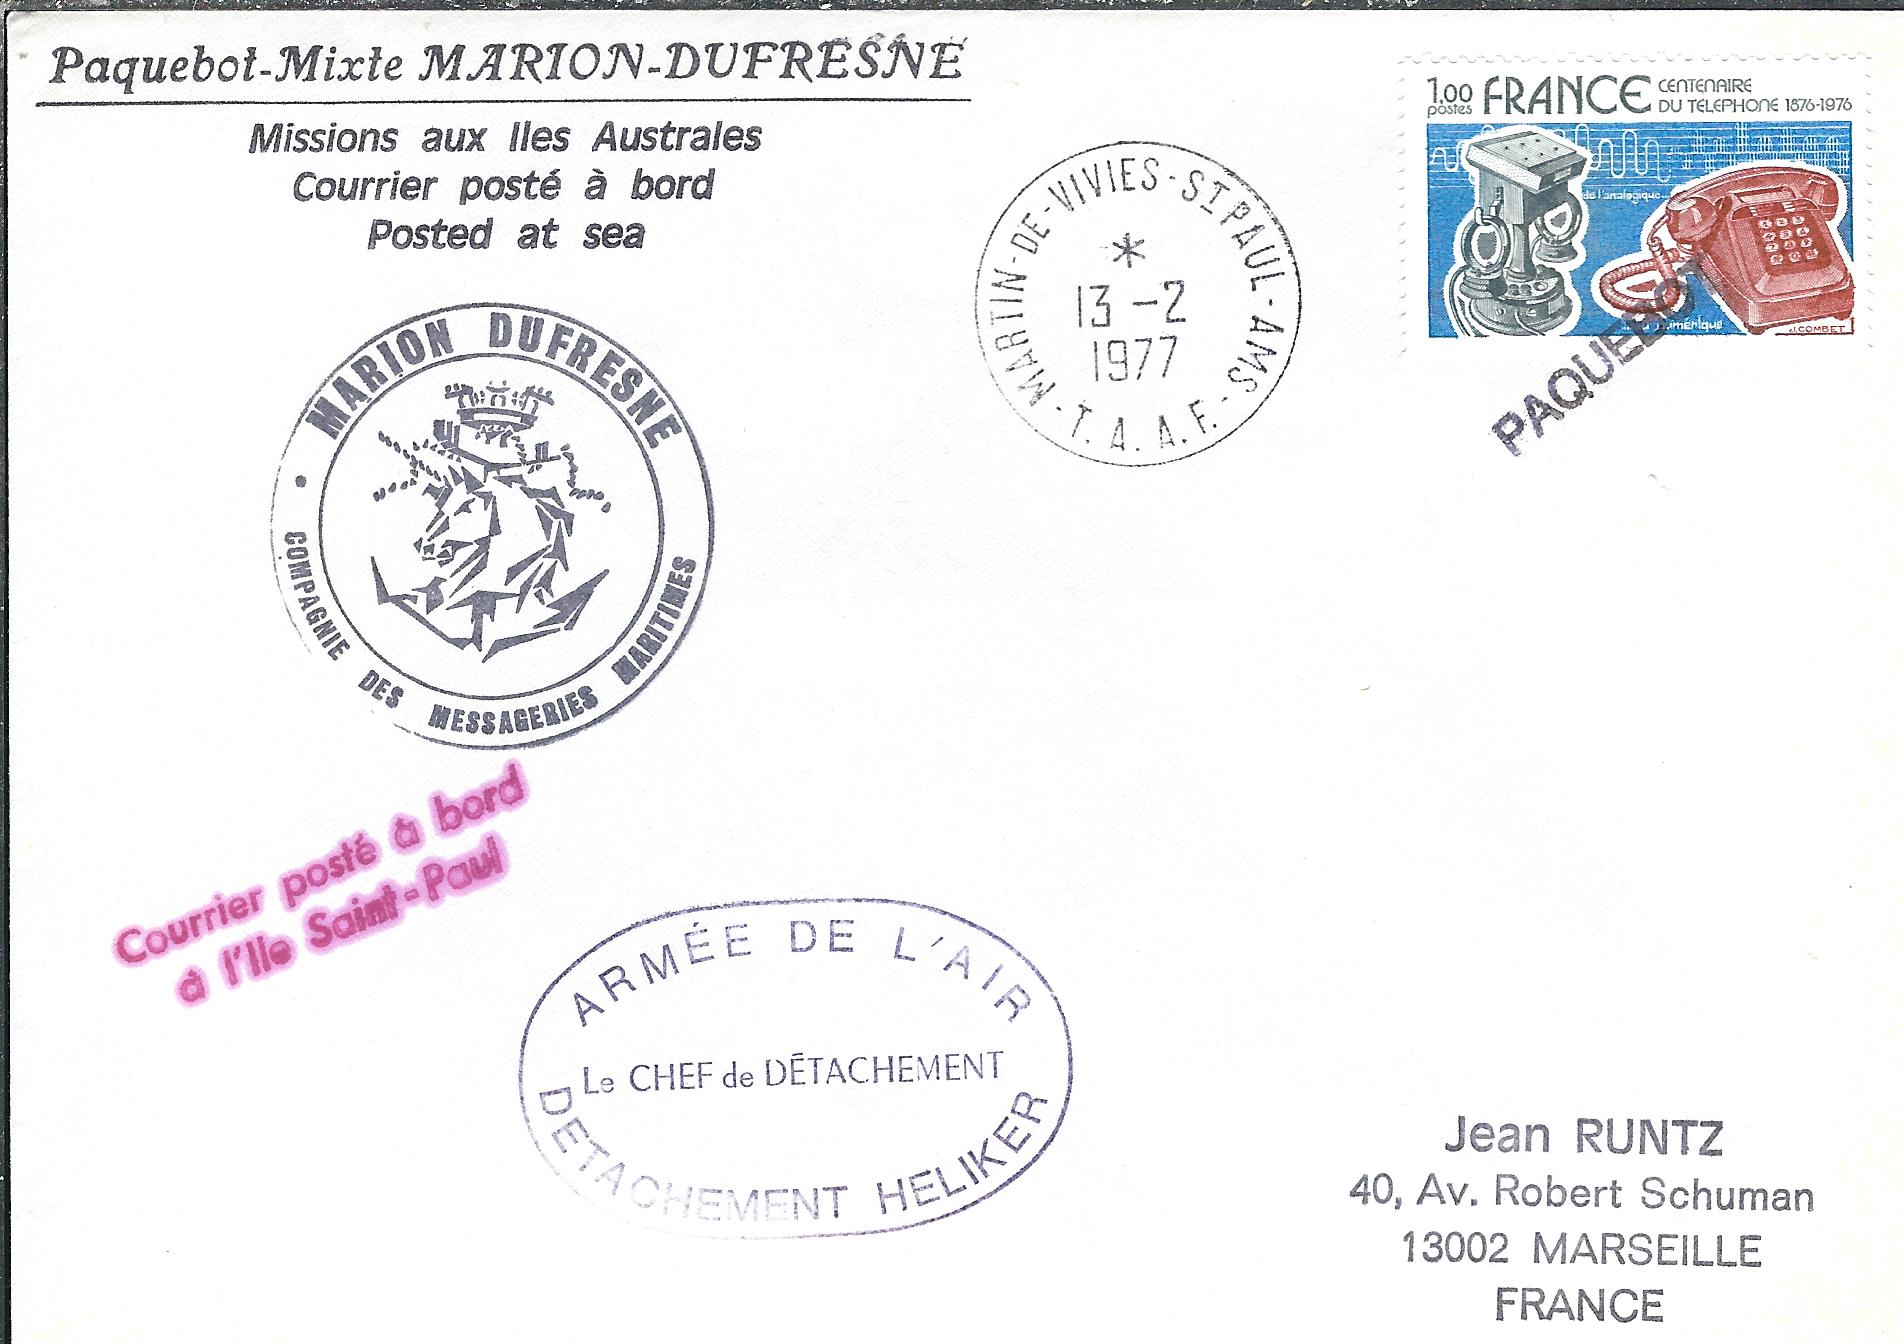 Paquebot-Mixte MARION-DUFRESNE
Missions aux Iles Australes
Courrier posté à bord
Posted at sea
MARION DUFRESNE
COMPAGNIE DES MESSAGERIES MARITIMES
MARTIN-DE-VIVIES-ST PAUL-AMS-T.A.A.F.-
*
13 -2
1977
1,00 FRANCE CENTENAIRE
postes DU TELEPHONE 1876-1976
de l'analogique...
numerique
J.COMBET
PAQUEBOT
Courrier posté à bord
à l'Ile Saint-Paul
ARMÉE DE L'AIR
Le CHEF de DÉTACHEMENT
DETACHEMENT HELIKER
Jean RUNTZ
40, Av. Robert Schuman
13002 MARSEILLE
FRANCE